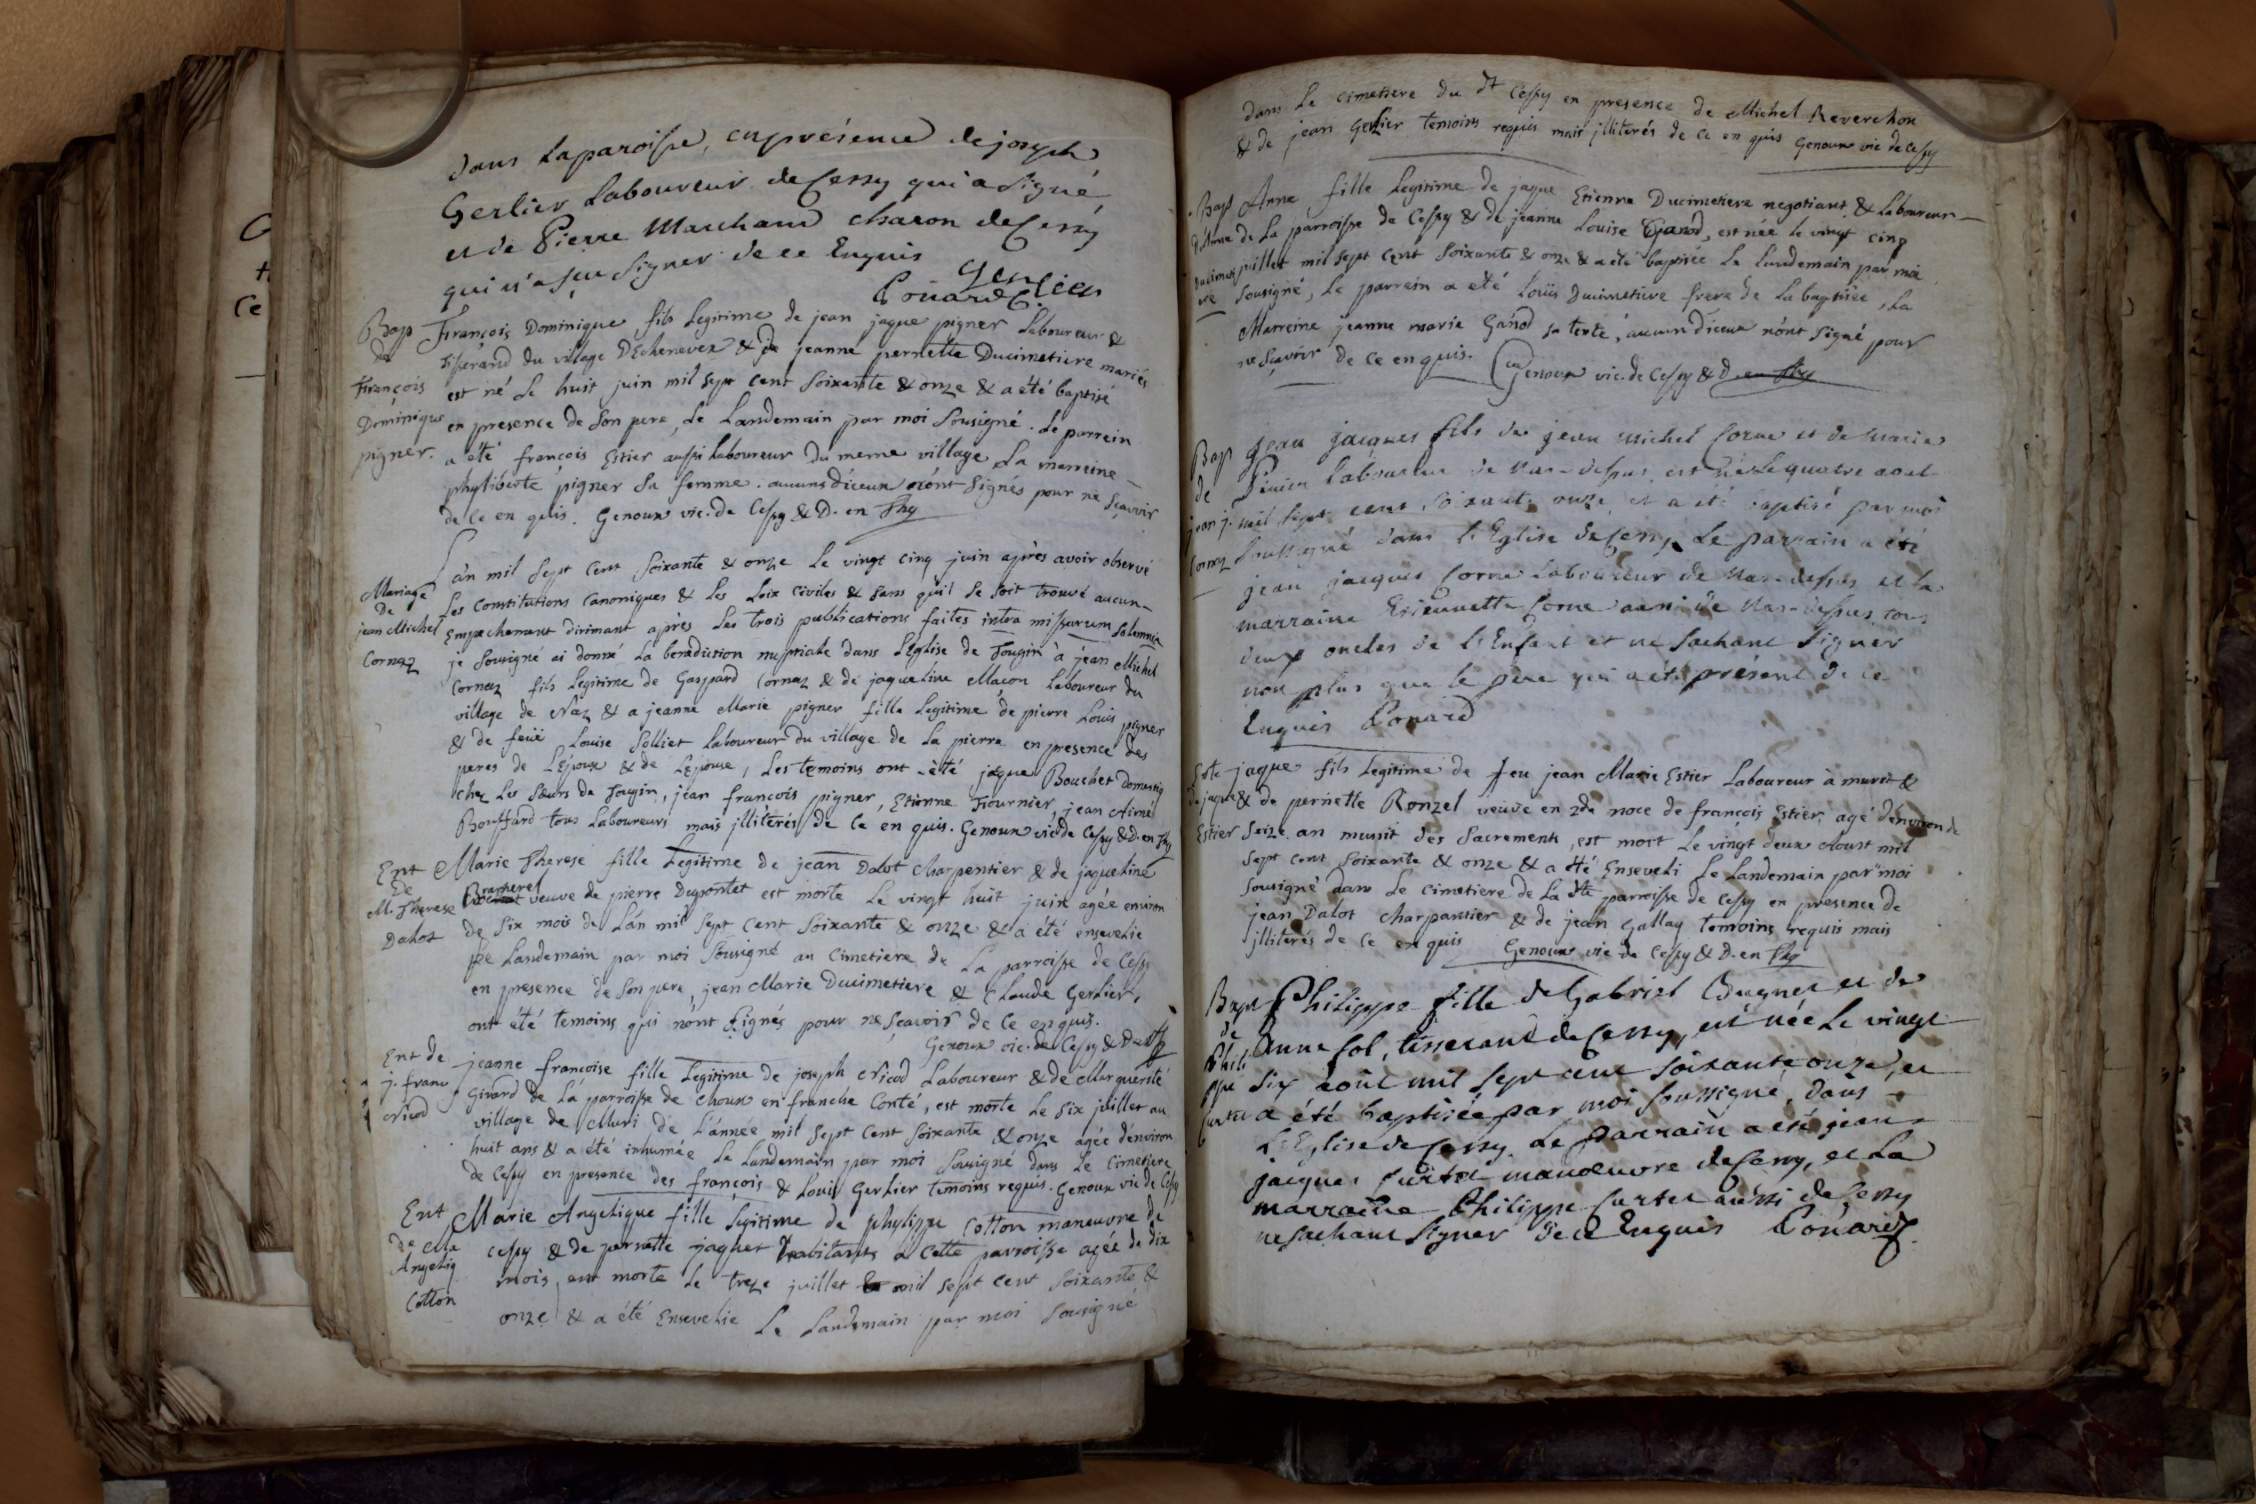 dans la paroisse, en présence de joseph
Gerlier Laboureur de Cessy qui a signé
et de Pierre Marchand charon de Cessy
qui n'a sçu signer de ce Enquis
Gerlier
Poüard C.
Bap
de
François
Dominique
pigner.
François Dominique fils Legitime de jean jaque pigner Laboureur &
tisserand du village d'Echenevex & de jeanne pernette Ducimetiere mariés
est né le huit juin mil sept cent soixante & onze & a été baptisé
en presence de son pere, le Landemain par moi sousigné. Le parrein
a été francois Estier aussi Laboureur du meme village La marreine
phyliberte pigner sa femme. aucuns d'iceux n'ont signés pour ne sçavoir
de ce en quis. Genoux vic. de Cessy & D. en Thy
Mariage
de
jean Michel
Cornaz
L'an mil sept cent soixante & onze le vingt cinq juin après avoir observé
les Constitutions Canoniques & les Loix civiles & sans qu'il se soit trouvé aucun
Empechement dirimant apres les trois publications faites intra missarum solemnia
je sousigné ai donné la benediction nuptiale dans l'Eglise de Tougin à jean Michel
Cornaz fils Legitime de Gaspard Cornaz & de jaqueline Macon Laboureur du
village de Naz & a jeanne Marie pigner fille Legitime de pierre Louis pigner
& de feüe Louise Solliet Laboureur du village de la pierre en presence des
peres de L'Epoux & de L'Epouse, Les temoins ont été jaque Bouchet domestiq
chez les Sœurs de Tougin, jean francois pigner, Etienne Fournier, jean Aimé
Bouffard tous Laboureurs mais jlliterés de ce en quis. Genoux vic de Cessy & D. en Thy
Ent
de
M. Therese
Dalot
Marie Therese fille Legitime de jean Dalot charpentier & de jaqueline
veuve de pierre Dupontet est morte le vingt huit juin agée environ
de six mois de L'an mil sept cent soixante & onze & a été ensevelie
le Landemain par moi sousigné au Cimetiere de La parroisse de Cessy
en presence de son pere, jean Marie Ducimetiere & Claude Gerlier,
ont été temoins qui n'ont signés pour ne sçavoir de ce enquis.
Genoux vic. de Cessy & D. en Thy
Ent de
j. franc
Nicod
jeanne francoise fille Legitime de joseph Nicod Laboureur & de Marguerite
Girard de La parroisse de Choux en franche Conté, est morte le six juillet au
village de Muri de L'année mil sept cent soixante & onze agée d'environ
huit ans & a été inhumée le Landemain par moi sousigné dans le Cimetiere
de Cessy en presence des françois & Louis Gerlier temoins requis. Genoux vic de Cessy
Ent
de Ma
Angeliq
Cotton
Marie Angelique fille Legitime de phylippe Cotton maneuvre de
Cessy & de pernette jaquet habitants a cette parroisse agée de dix
mois, est morte le treze juillet mil sept cent soixante &
onze & a été Ensevelie le Landemain par moi sousigné
dans le cimetiere du dt Cessy en presence de Michel Reverchon
& de jean Gerlier temoins requis mais jlliterés de ce en quis Genoux vic de Cessy
Bap
d'Anne
Anne fille Legitime de jaque Etienne Ducimetiere negotiant & Laboureur
de La parroisse de Cessy & de jeanne Louise Ganod, est née le vingt cinq
juillet mil sept cent soixante & onze & a été baptisée le Landemain par moi
sousigné, le parrein a été Loüis Ducimetiere frere de la baptisée, La
Marreine jeanne marie Ganod sa tente, aucun d'iceux n'ont signé pour
ne sçavoir de ce en quis. Genoux vic. de Cessy & D. en Thy
Bap
de
jean j.
Cornaz
jean jacques fils de jean Michel Corne et de Marie
Laboureur de Nas-dessus est né le quatre aout
mil sept cent soixante onze, et a été baptisé par moi
soussigné dans l'Eglise de Cessy. Le parrain a été
jean jacques Corne Laboureur de Nas-dessus et la
marraine Etiennette Corne aussi de Nas-dessus tous
deux oncles de l'Enfant et ne sachant signer
non plus que le pere qui a été présent de ce
Enquis Poüard
de jaque
Estier
jaque fils Legitime de feu jean Marie Estier Laboureur à murit &
& de pernette Ronzel veuve en 2de noce de francois Estier, agé d'environ de
seize an munit des Sacrements, est mort le vingt deux Aoust mil
sept cent soixante & onze & a été Enseveli le Landemain par moi
sousigné dans le Cimetiere de La dte parroisse de Cessy en presence de
jean Dalot charpantier & de jean Gallay temoins requis mais
jlliterés de ce en quis Genoux vic de Cessy & D. en Thy
Bapt
de
Phili
ppe
Philippe fille de Gabriel Bugnet et de
Anne Sol, tisserand de Cessy, est née le vingt
six août mil sept cent soixante onze, et
a été baptisée par moi soussigné, dans
L'Eglise de Cessy. Le parrain a été jean
jacques Curtet manœuvre de Cessy, et La
marraine Philippe Curtet aussi de Cessy
ne sachant signer de ce Enquis Poüard